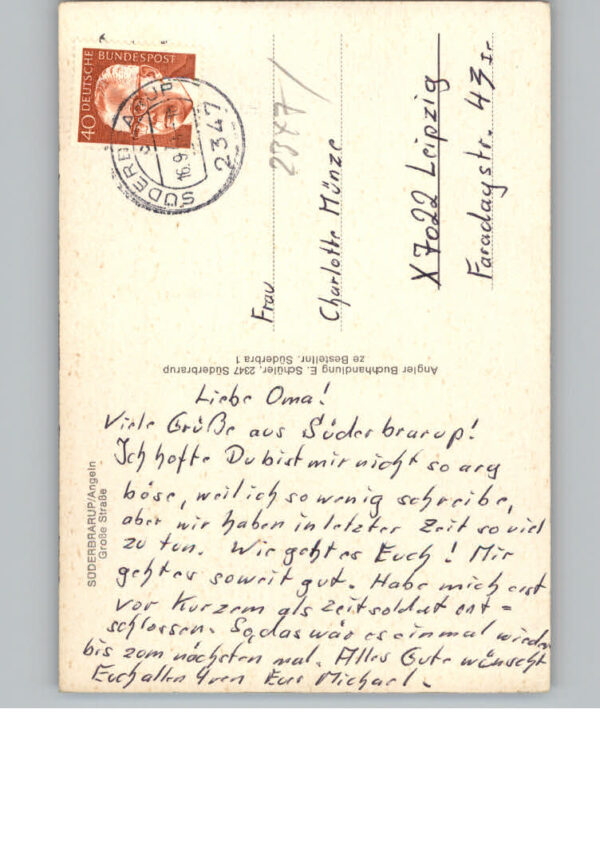 40 DEUTSCHE BUNDESPOST
SÜDERBRARUP
16.9.
2347
2347/
Frau
Charlotte Münze
X7022 Leipzig
Faradaystr. 43
Angler Buchhandlung E. Schüler, 2347 Süderbrarup
ze Bestellnr. Süderbra 1
SÜDERBRARUP/Angeln
Große Straße
Liebe Oma!
Viele Grüße aus Süderbrarup!
Ich hoffe Du bist mir nicht so arg
böse, weil ich so wenig schreibe,
aber wir haben in letzter Zeit so viel
zu tun. Wie geht es Euch! Mir
geht es soweit gut. Habe mich erst
vor Kurzem als Zeitsoldat ent=
schlossen. So, das wär es einmal wieder
bis zum nächsten mal. Alles Gute wünscht
Euch allen Euer Michael.